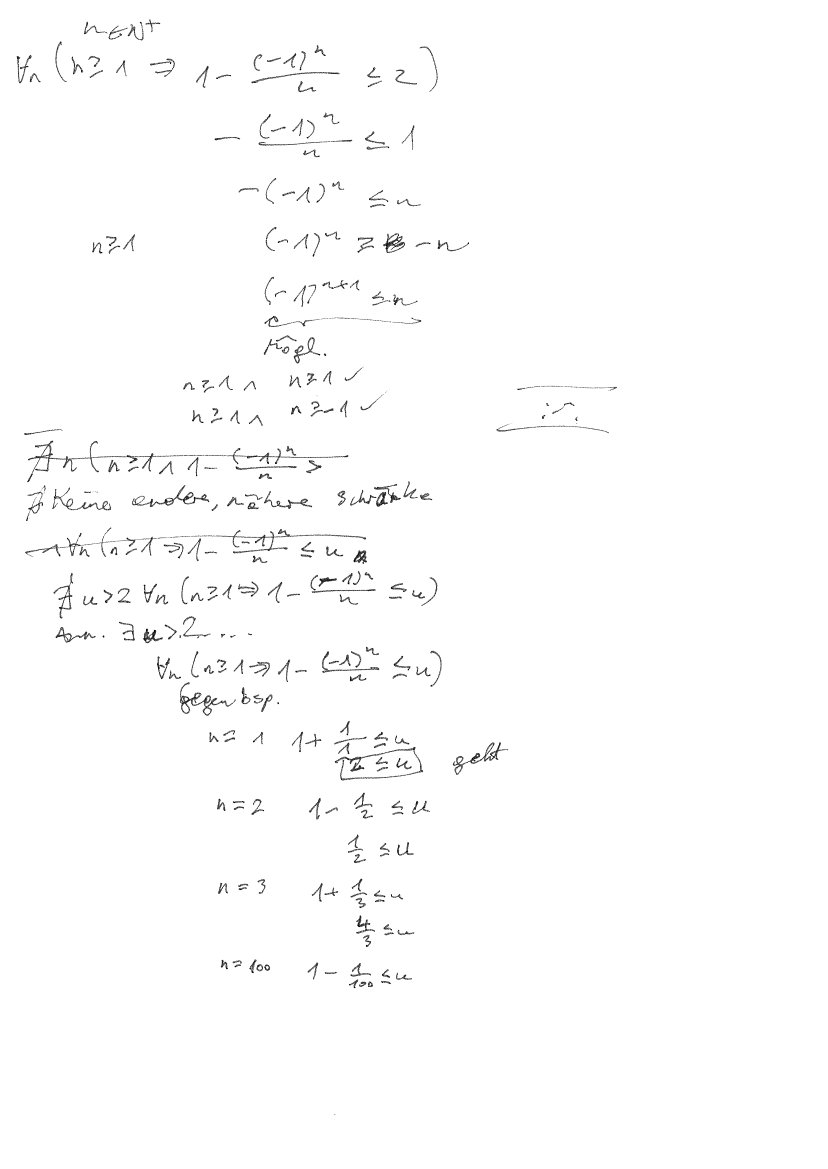 n ∈ N⁺
∀n (n ≥ 1 ⇒ 1 - (-1)ⁿ/n ≤ 2)
- (-1)ⁿ/n ≤ 1
-(-1)ⁿ ≤ n
n ≥ 1 (-1)ⁿ ≥ -n
(-1)ⁿ⁺¹ ≤ n
Mögl.
n ≥ 1 ∧ n ≥ 1 ✓
n ≥ 1 ∧ n ≥ -1 ✓
∄n (n ≥ 1 ∧ 1 - (-1)ⁿ/n >
∄ Keine andere, nähere Schranke
¬∀n (n ≥ 1 ⇒ 1 - (-1)ⁿ/n ≤ u
∄u > 2 ∀n (n ≥ 1 ⇒ 1 - (-1)ⁿ/n ≤ u)
Ann. ∃u > 2 ....
∀n (n ≥ 1 ⇒ 1 - (-1)ⁿ/n ≤ u)
Gegenbsp.
n = 1 1 + 1/1 ≤ u
2 ≤ u geht
n = 2 1 - 1/2 ≤ u
1/2 ≤ u
n = 3 1 + 1/3 ≤ u
4/3 ≤ u
n = 100 1 - 1/100 ≤ u